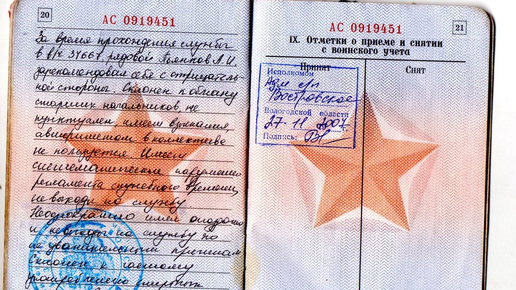 20
АС 0919451
За время прохождения службы
в в/ч 34667 рядовой А.И.
зарекомендовал себя с отрицатель-
ной стороны. Склонен к обману
старших начальников, не
пунктуален, имеет взыскания,
авторитетом в коллективе
не пользуется. Имеет
систематические нарушения
регламента служебного времени,
не выходы на службу.
Неоднократно имел опоздания
и на службу по
не уважительным причинам
Склонен к частому
употреблению спиртных
АС 0919451
21
IX. Отметки о приеме и снятии
с воинского учета
Принят
Снят
Исполкомом
Адм с/п
Востровское
Вологодской области
27.11 2007
Подпись: